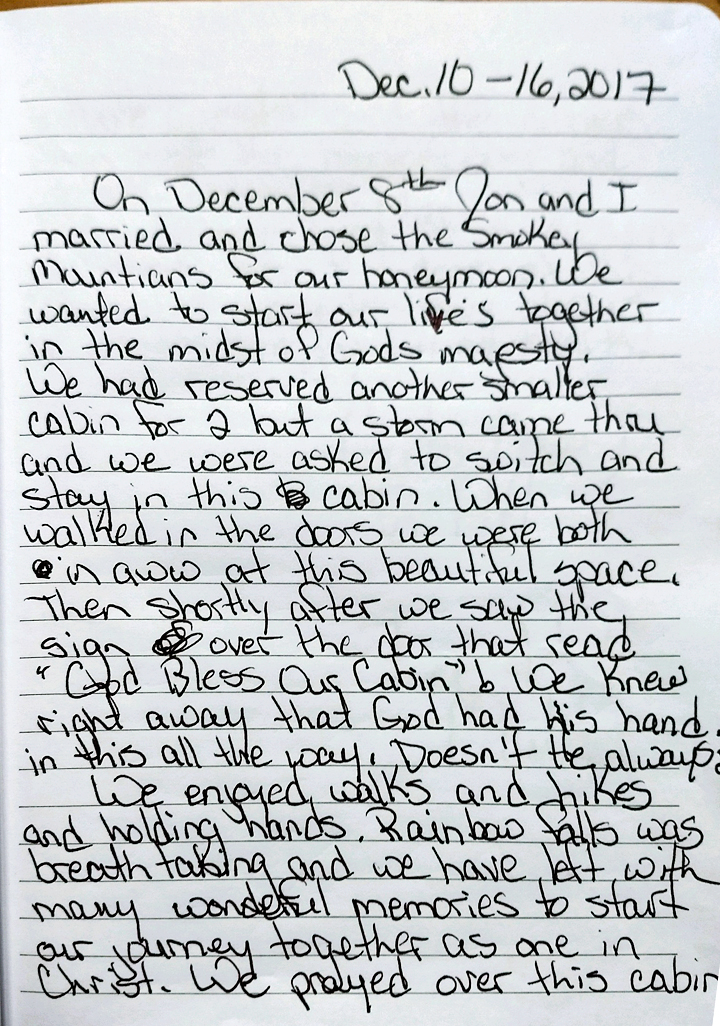 Dec. 10 - 16, 2017
On December 8th Jon and I
married and chose the Smokey
Mountians for our honeymoon. We
wanted to start our live's together
in the midst of Gods majesty.
We had reserved another smaller
cabin for 2 but a storm came thru
and we were asked to switch and
stay in this cabin. When we
walked in the doors we were both
in aww at this beautiful space.
Then shortly after we saw the
sign over the door that read
"God Bless Our Cabin" We knew
right away that God had his hand
in this all the way. Doesn't He always?
We enjoyed walks and hikes
and holding hands. Rainbow falls was
breath taking and we have left with
many wonderful memories to start
our journey together as one in
Christ. We prayed over this cabin